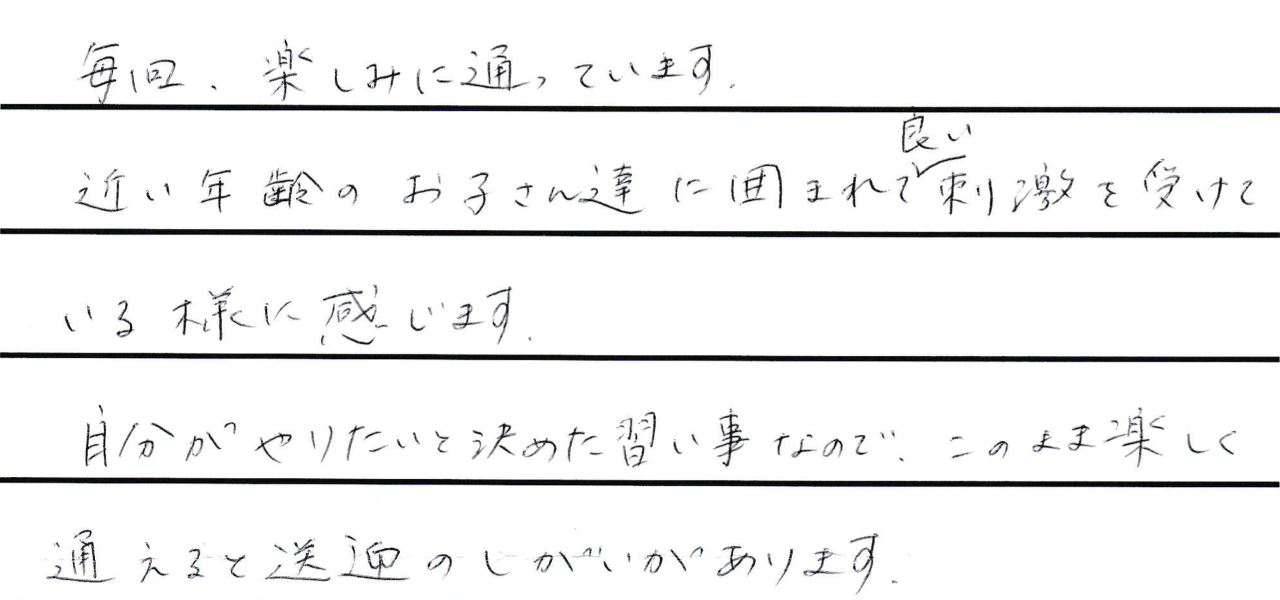 毎回、楽しみに通っています.
近い年齢のお子さん達に囲まれて良い刺激を受けて
いる様に感じます.
自分がやりたいと決めた習い事なので、このまま楽しく
通えると送迎のしがいがあります.